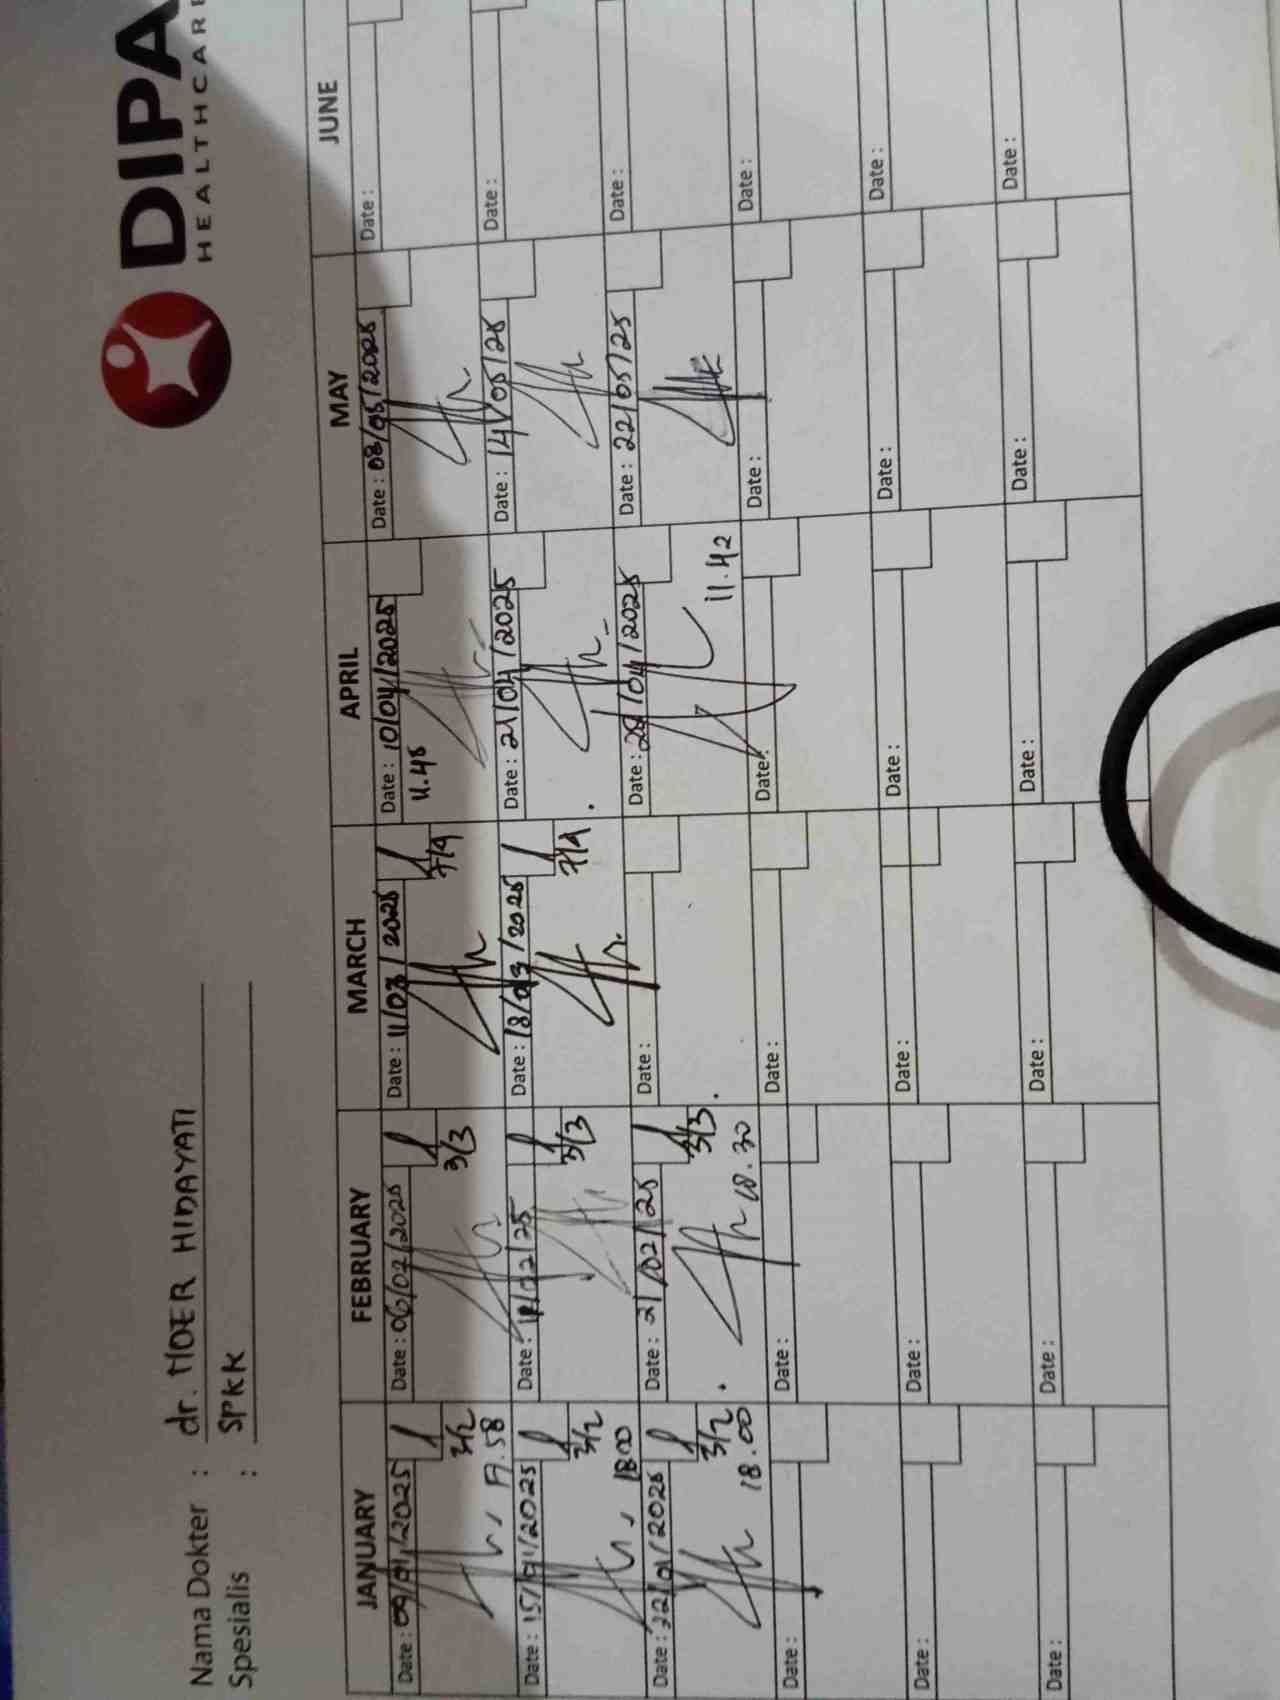 DIPA
HEALTHCAR
Nama Dokter : dr. NOER HIDAYATI
Spesialis : SPKK
JANUARY FEBRUARY MARCH APRIL MAY JUNE
Date : 09/01/2025 Date : 06/02/2025 Date : 11/03/2025 Date : 10/04/2025 Date : 08/05/2025 Date :
3/2 3/3 7/4 11.45
17.58
Date : 15/01/2025 Date : 11/02/25 Date : 18/03/2025 Date : 21/04/2025 Date : 14/05/25 Date :
3/2 3/3 7/4
1800
Date : 22/01/2025 Date : 21/02/25 Date : Date : 28/04/2025 Date : 22/05/25 Date :
3/2 3/3
18.00 18.30 11.42
Date : Date : Date : Date : Date : Date :
Date : Date : Date : Date : Date : Date :
Date : Date : Date : Date : Date : Date :